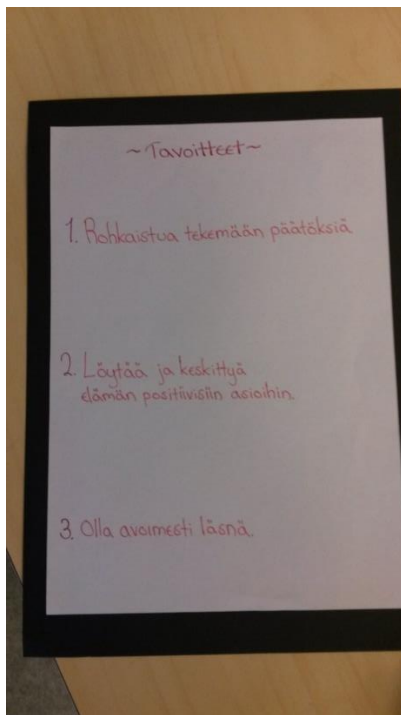 ~Tavoitteet~
1. Rohkaistua tekemään päätöksiä
2. Löytää ja keskittyä
elämän positiivisiin asioihin.
3. Olla avoimesti läsnä.